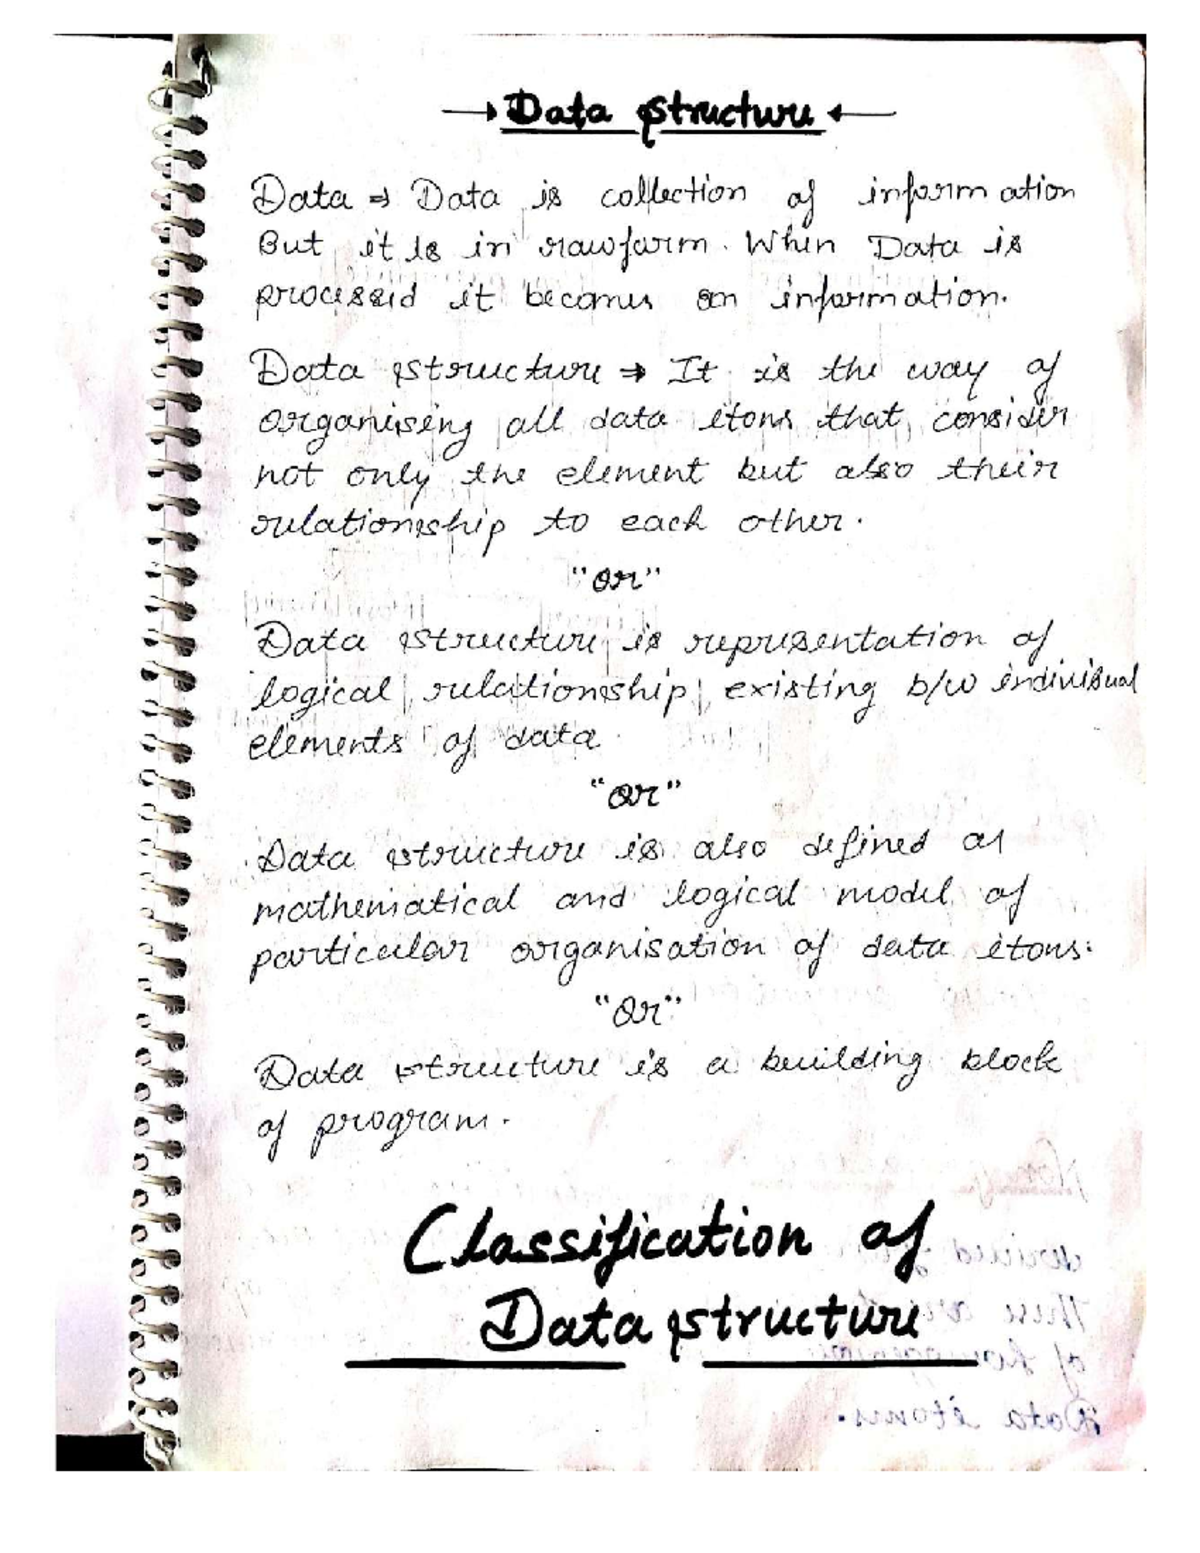 → Data structure ←
Data ⇒ Data is collection of information
But it is in rawform. When Data is
processed it becomes an information.
Data structure ⇒ It is the way of
organising all data itoms that consider
not only the element but also their
relationship to each other.
"or"
Data structure is representation of
logical relationship existing b/w individual
elements of data
"or"
Data structure is also defined as
mathematical and logical model of
particular organisation of data itoms.
"Or"
Data structure is a building block
of program.
Classification of
Data structure